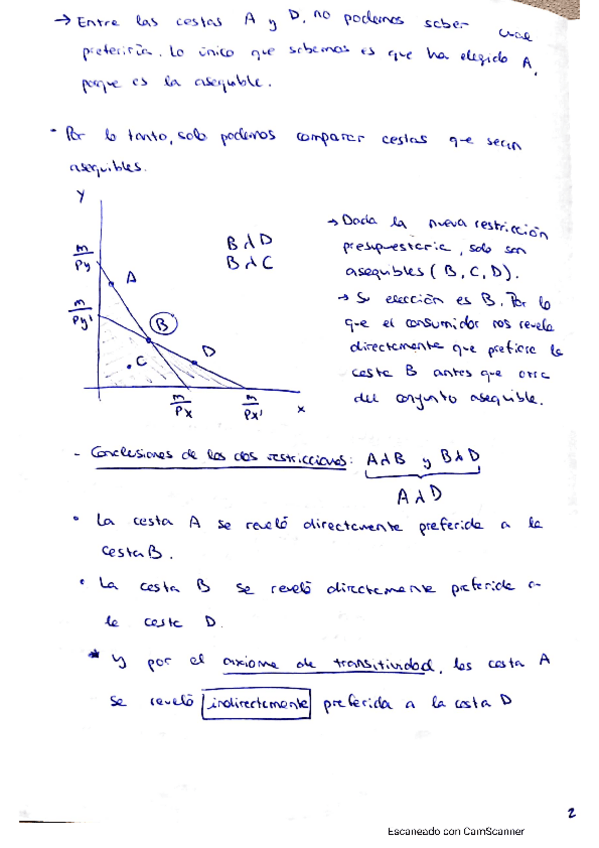 → Entre las cestas A y D, no podemos saber cual
preferiría. Lo único que sabemos es que ha elegido A,
porque es la asequible.
- Por lo tanto, solo podemos comparar cestas que sean
asequibles.
Y
m/Py
A
m/Py'
B
C
D
m/Px
m/Px'
x
B λ D
B λ C
→ Dada la nueva restricción
presupuestaria, solo son
asequibles (B, C, D).
→ Su elección es B. Por lo
que el consumidor nos revela
directamente que prefiere la
cesta B antes que otra
del conjunto asequible.
- Conclusiones de las dos restricciones: A λ B y B λ D
A λ D
• La cesta A se reveló directamente preferida a la
cesta B.
• La cesta B se reveló directamente preferida a
la cesta D.
* Y por el axioma de transitividad, las cesta A
se reveló indirectamente preferida a la cesta D
2
Escaneado con CamScanner